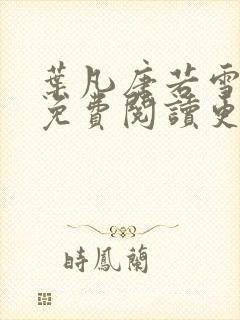 葉凡唐若雪
免費閱讀更
時鳳蘭